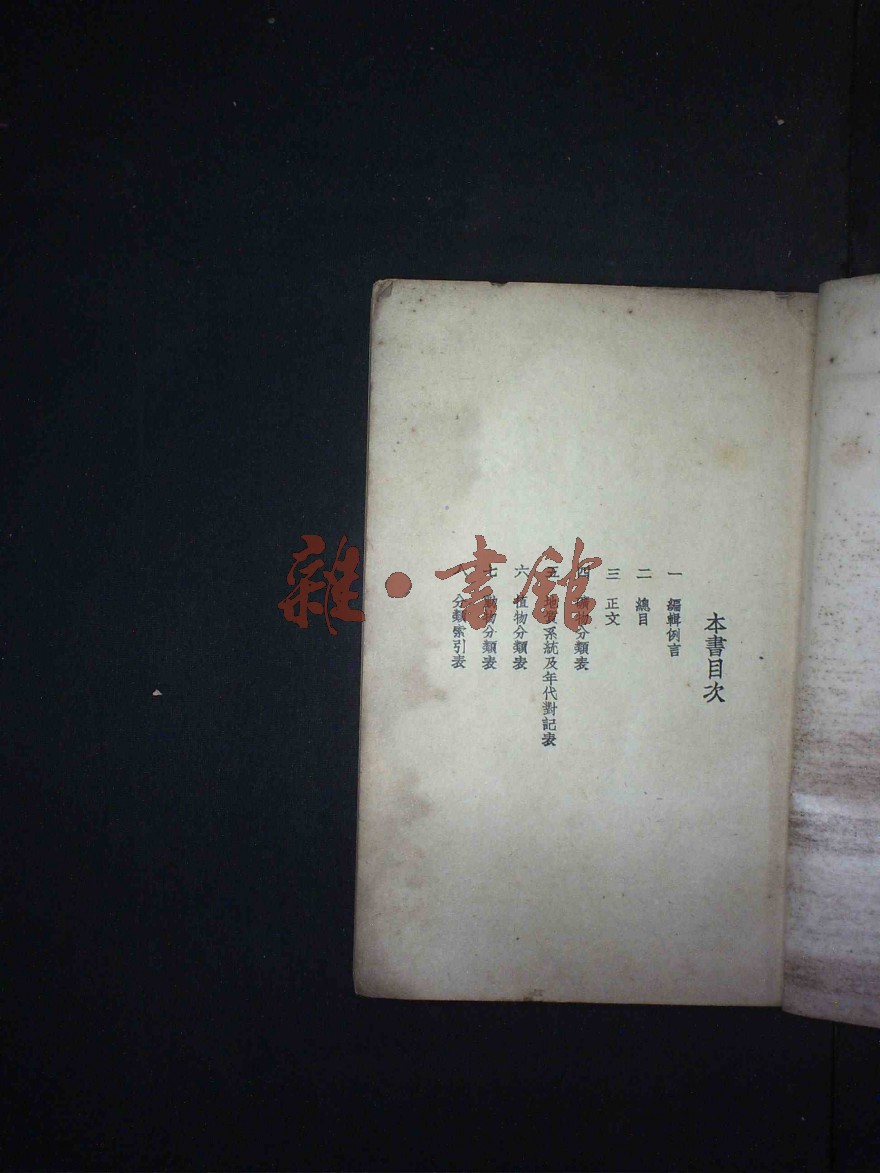 本書目次
一 編輯例言
二 總目
三 正文
四 礦物分類表
五 地質系統及年代對記表
六 植物分類表
七 動物分類表
八 分類索引表
雜·書館